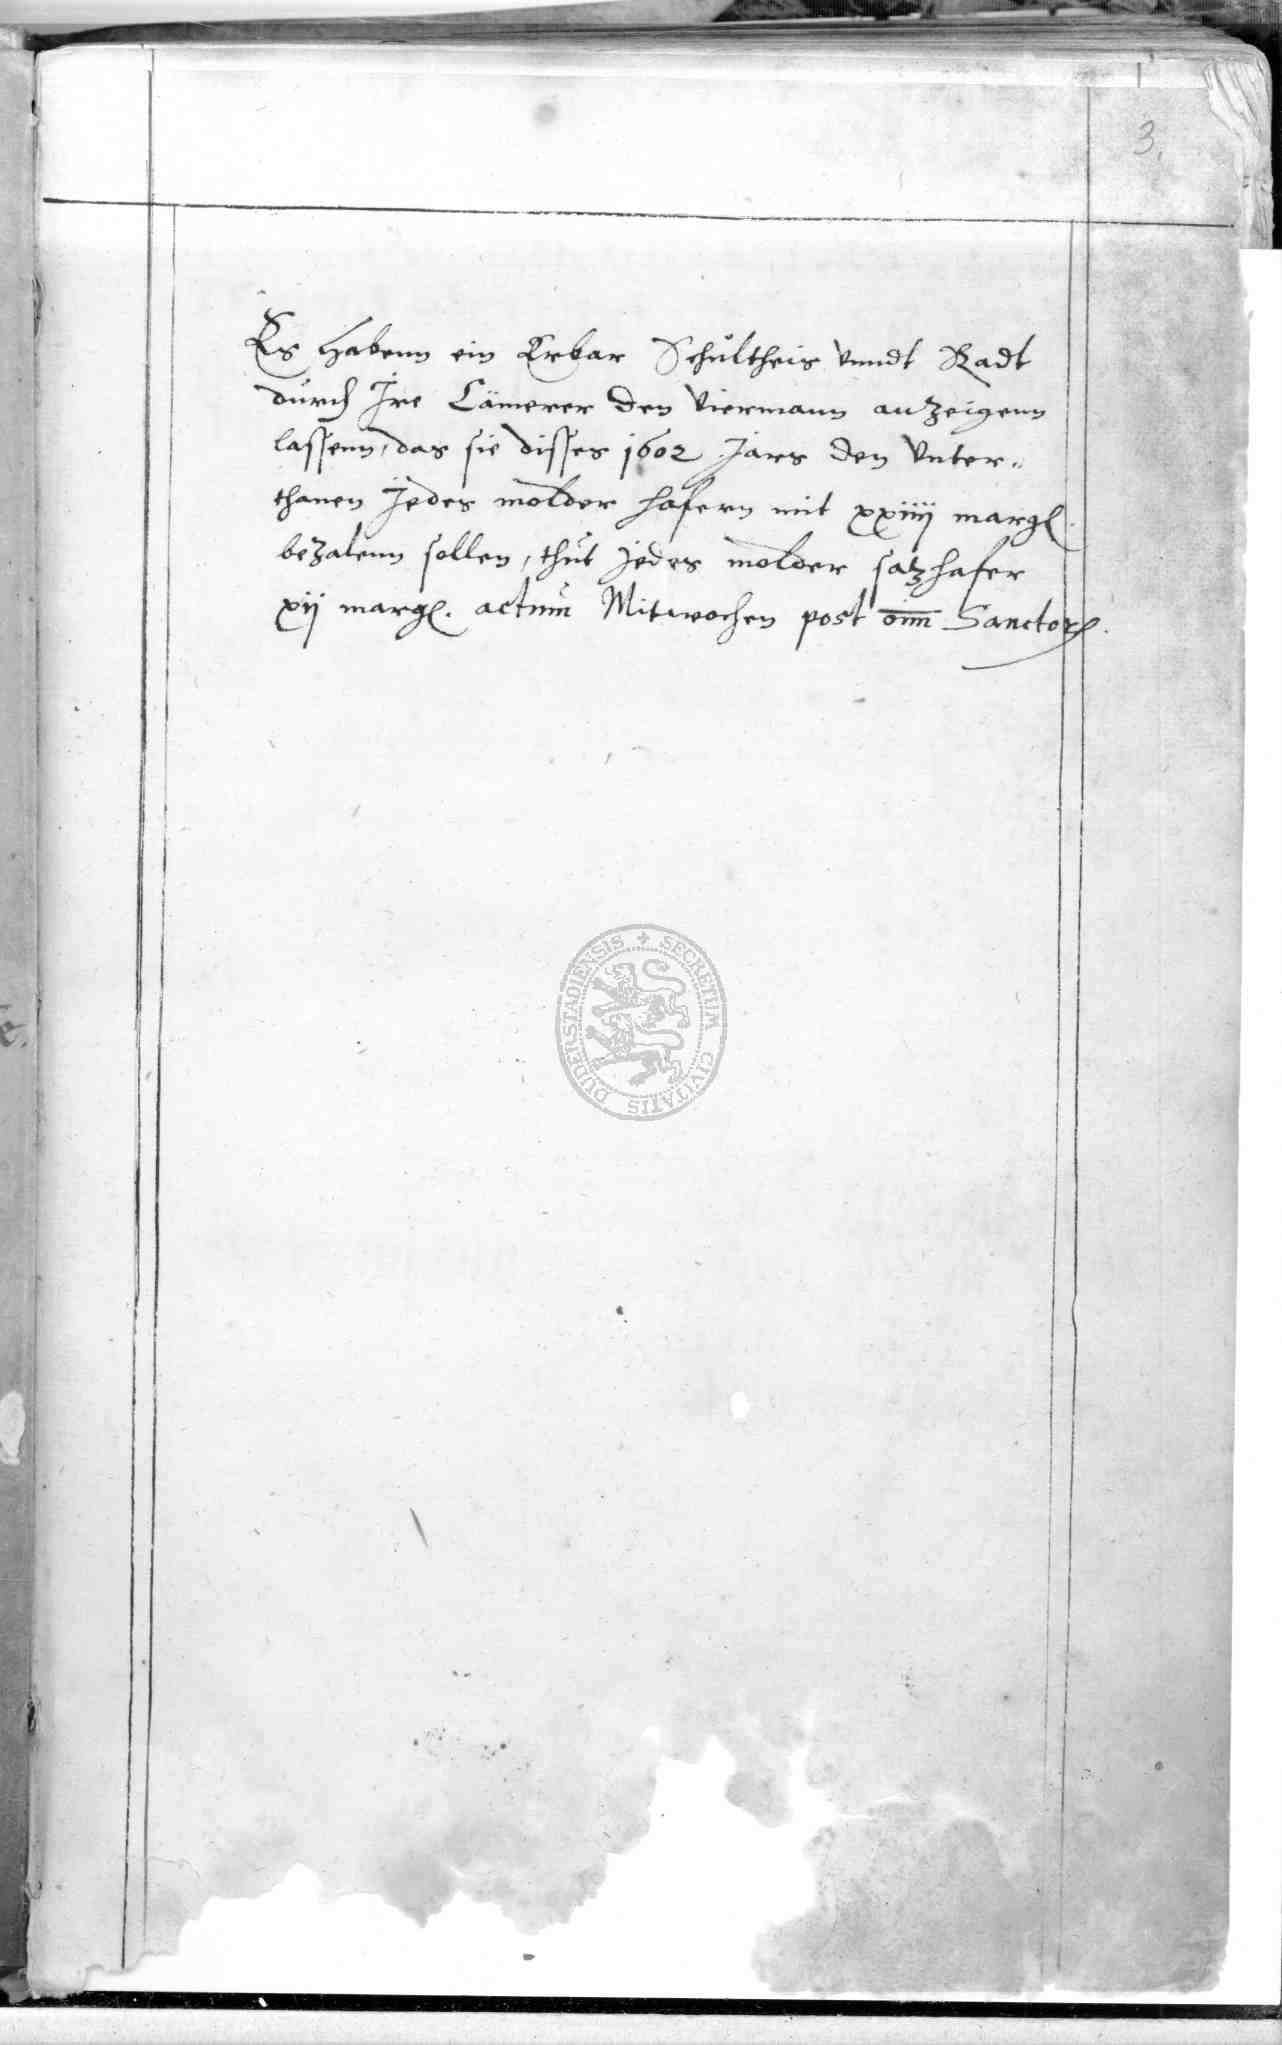 3.
Es habenn ein Erbar Schultheis vnndt Radt
durch Ire Cämerer den Viermann anzeigenn
lassenn, das sie disses 1602 Jars den Vnter„
thanen Jedes molder hafern mit xxiiij margl.
bezalenn sollen, thut jedes molder satzhafer
xij margl. actum Mitwochen post oim Sanctor.
SECRETUM CIVITATIS DUDERSTADIENSIS